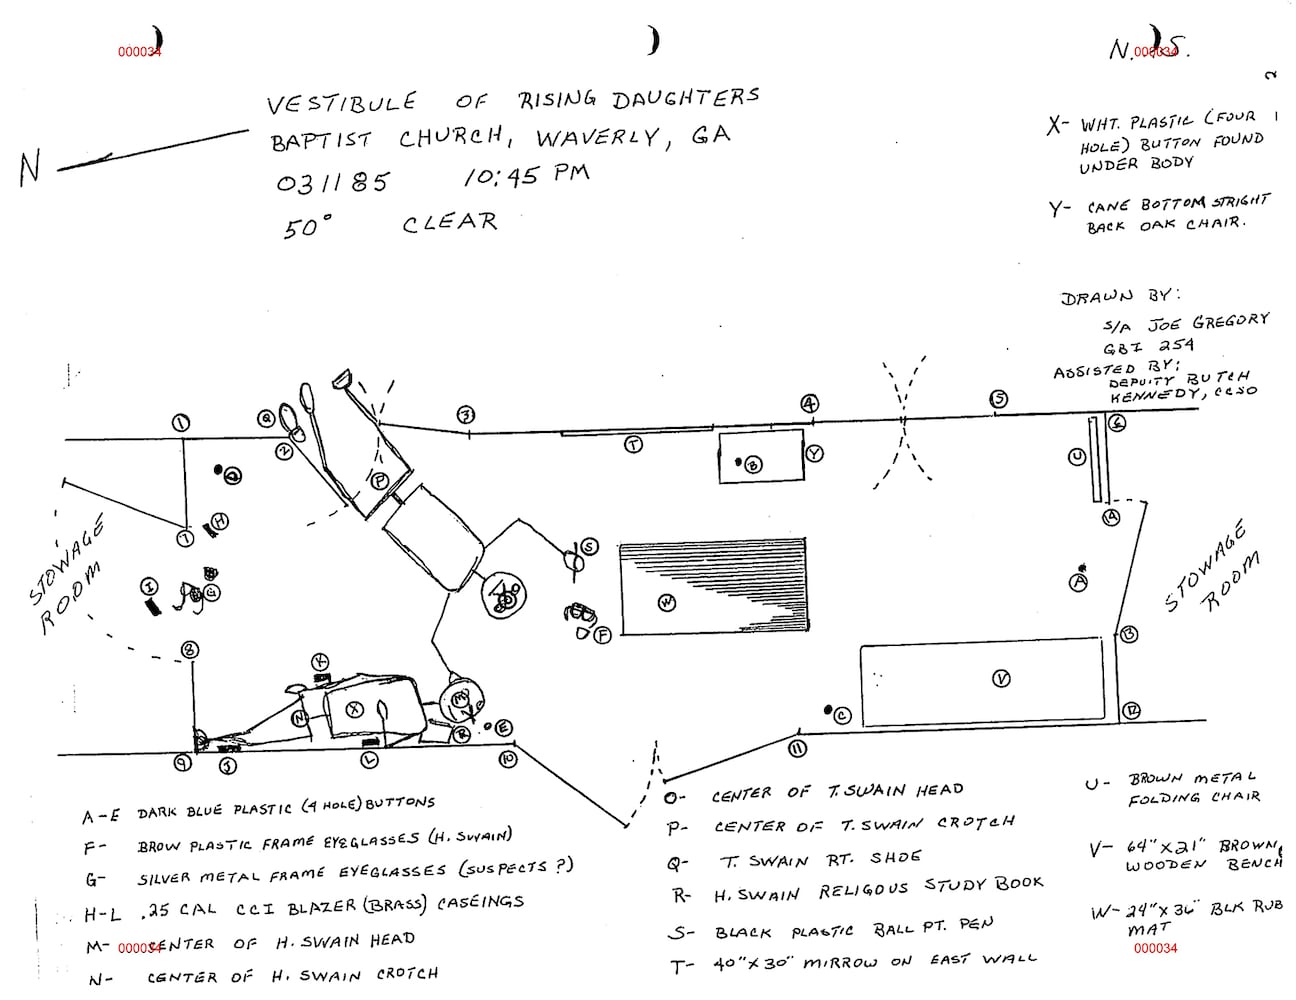 000034
000034
N. S.
000034
2
VESTIBULE OF RISING DAUGHTERS
BAPTIST CHURCH, WAVERLY, GA
031185 10:45 PM
50° CLEAR
N
X- WHT. PLASTIC (FOUR
HOLE) BUTTON FOUND
UNDER BODY
Y- CANE BOTTOM STRIGHT
BACK OAK CHAIR.
DRAWN BY:
S/A JOE GREGORY
GBI 254
ASSISTED BY;
DEPUITY BUTCH
KENNEDY, CCSO
1
Q
2
3
4
5
6
T
B
Y
U
P
D
H
7
14
I
G
S
F
W
A
STOWAGE
ROOM
STOWAGE
ROOM
8
K
N
X
M
R
E
V
13
C
12
9
J
L
10
11
A-E DARK BLUE PLASTIC (4 HOLE) BUTTONS
F- BROW PLASTIC FRAME EYEGLASSES (H. SWAIN)
G- SILVER METAL FRAME EYEGLASSES (SUSPECTS ?)
H-L .25 CAL CCI BLAZER (BRASS) CASEINGS
M- CENTER OF H. SWAIN HEAD
000034
N- CENTER OF H. SWAIN CROTCH
O- CENTER OF T. SWAIN HEAD
P- CENTER OF T. SWAIN CROTCH
Q- T. SWAIN RT. SHOE
R- H. SWAIN RELIGOUS STUDY BOOK
S- BLACK PLASTIC BALL PT. PEN
T- 40"X30" MIRROW ON EAST WALL
U- BROWN METAL
FOLDING CHAIR
V- 64"X21" BROWN
WOODEN BENCH
W- 24"X36" BLK RUB
MAT
000034